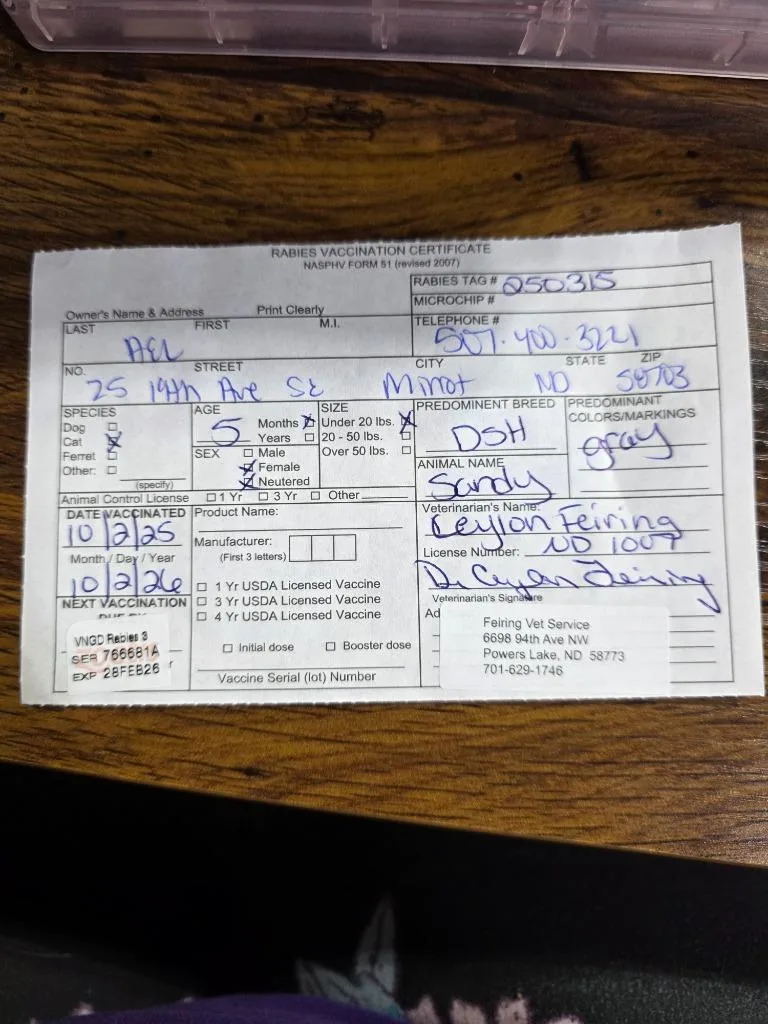 RABIES VACCINATION CERTIFICATE
NASPHV FORM 51 (revised 2007)
RABIES TAG # 250315
MICROCHIP #
Owner's Name & Address Print Clearly
LAST FIRST M.I.
TELEPHONE #
AEL
507.400.3221
NO. STREET CITY STATE ZIP
25 19th Ave SE Minot ND 58703
SPECIES
Dog
Cat
Ferret
Other:
(specify)
AGE
5 Months
Years
SEX Male
Female
Neutered
SIZE
Under 20 lbs.
20 - 50 lbs.
Over 50 lbs.
PREDOMINENT BREED
DSH
PREDOMINANT
COLORS/MARKINGS
gray
ANIMAL NAME
Sandy
Animal Control License 1 Yr 3 Yr Other
DATE VACCINATED
10/2/25
Month / Day / Year
10/2/26
NEXT VACCINATION
VNGD Rabies 3
SER 766681A
EXP 28FEB26
Product Name:
Manufacturer:
(First 3 letters)
1 Yr USDA Licensed Vaccine
3 Yr USDA Licensed Vaccine
4 Yr USDA Licensed Vaccine
Initial dose Booster dose
Vaccine Serial (lot) Number
Veterinarian's Name:
Ceylon Feiring
License Number: ND 1007
Dr Ceylon Feiring
Veterinarian's Signature
Ad
Feiring Vet Service
6698 94th Ave NW
Powers Lake, ND 58773
701-629-1746